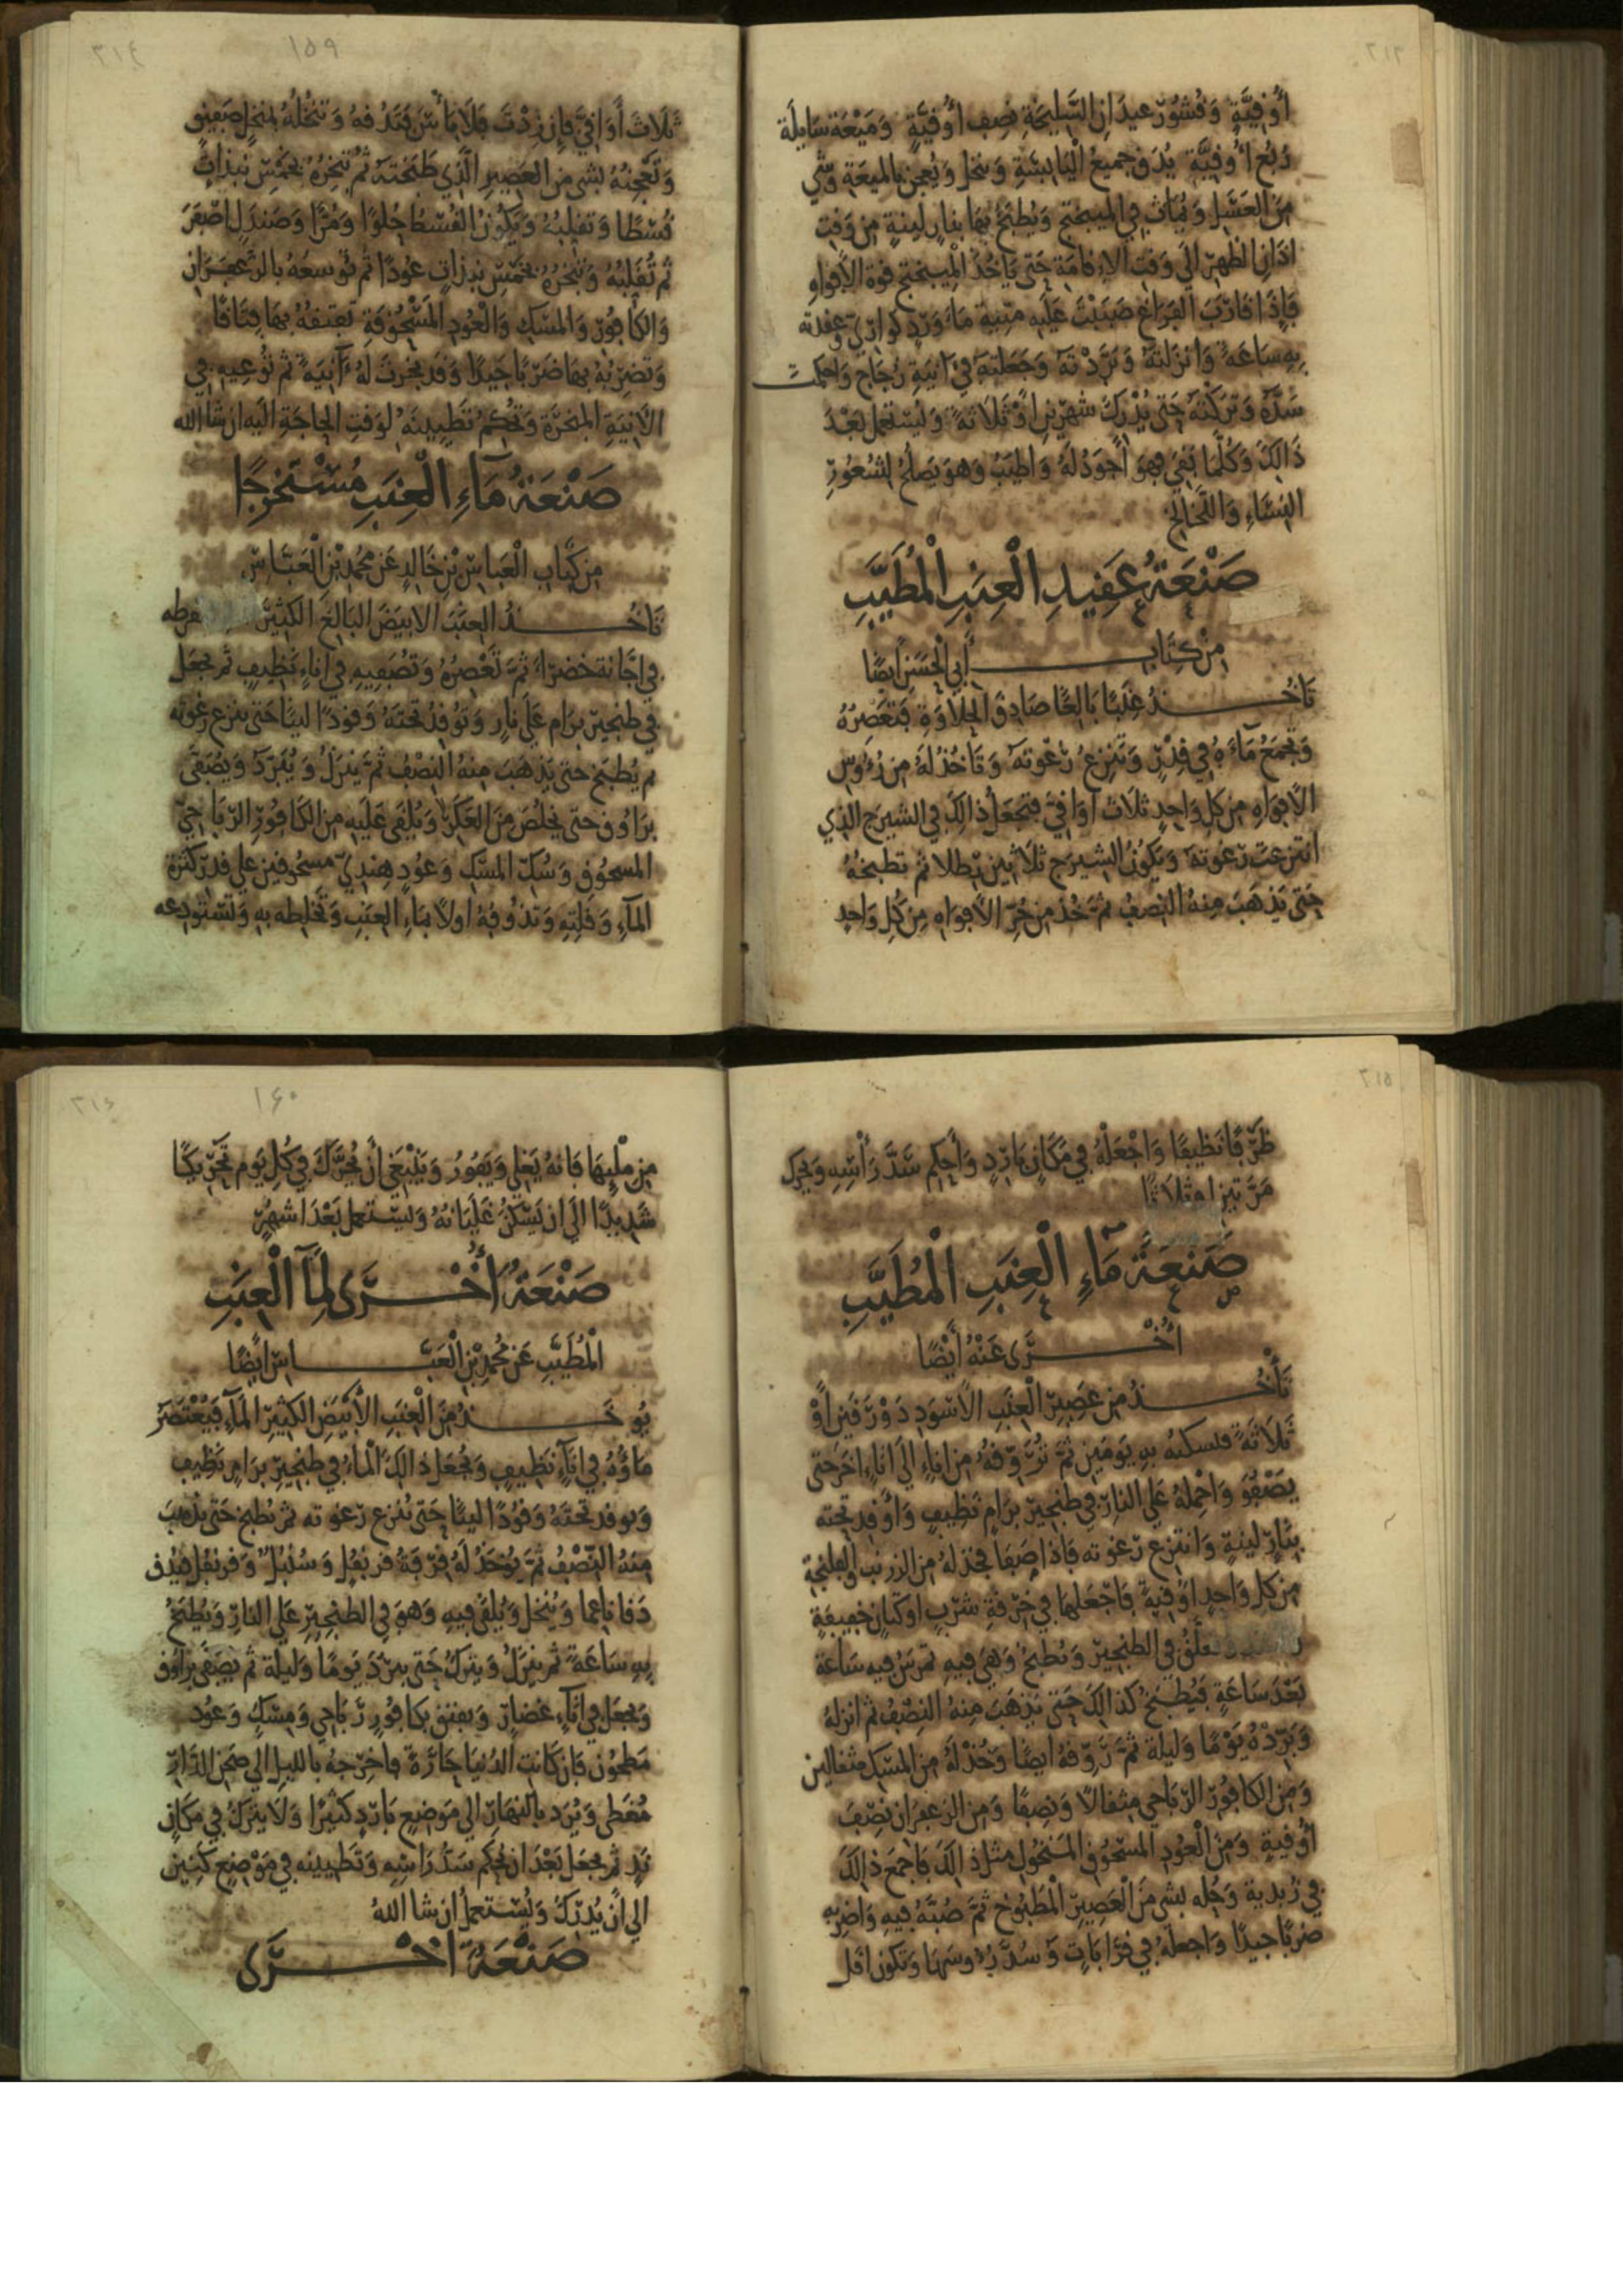 ٣١٣
أُوقِيَّةٍ وَقُشُورِ عِيدَانِ السَّلِيخَةِ نِصف أُوقِيَّةٍ وَمَيْعَة سَايلَة
رُبُع أُوقِيَّةٍ يُدَق جميعُ الْيَابسَةِ وَينخل وَيُعجن بالميعَةِ وَشي
مِنَ العَسَلِ وَيُمَاث فِي الميبختج وَيُطبَخُ بِهَا بنارٍ لَينةٍ مِن وَقتِ
اذَانِ الظهرِ الَي وَقت الاقَامَةِ حَتى يَاخُذَ الْميبختج قوة الافواهِ
فَإذَا قَارَبَ الفرَاغ صَبَبْتَ عَلَيهِ مَاءَ وَردٍ وعقدته
بِهِ سَاعَةً وَانزَلتهُ وَبَرَّدْتهُ وَجَعَلتهُ فِي آنيَةِ زُجَاج وَاحكمت
سَدَّهُ وَتركتهُ حَتى يُدْرِكَ شهرَين اوْ ثَلَاثهً وَليُسْتعمل بَعْدَ
ذَالِكَ وَكُلَّمَا بَقيَ فهوَ أجودُ لهُ وَاطيَبُ وَهوَ يَصلُحُ لِشعُورِ
النِسَاءِ وَاللَّخَالخ
صَنْعَةُ عَقِيدِ الْعِنَبِ الْمُطَيَّبِ
مِنْ كِتَابِ أَبي الحَسَنِ أيضًا
تَاخُذُ عِنَبًا بَالِغًا صَادِقَ الحَلَاوَةِ فَتعَصِرُهُ
وَتجمَعُ مَآءَهُ فِي قِدْرٍ وَتَنزِعُ رَغْوَتهُ وَتَاخُذُ لَهُ مِن رُءُوسِ
الافوَاهِ مِن كلِ وَاحِدٍ ثلَاث اوَاقيَّ فتجعَل ذالِكَ في الشيرَج الذِي
انتزعتَ رَغوَتهُ وَيكونُ الشيرَج ثلَاثينَ رطلا ثم تطبخُهُ
حَتى يَذهَبَ مِنهُ النِصفُ ثمَّ خُذ مِن الافوَاهِ مِن كُلِ وَاحِدٍ
٣١٤
١٥٩
ثَلَاثَ أَوَاقِيَّ فَإن زِدْتَ فَلَا بَأسَ فَتَدُقهُ وَتنخُلُهُ بمنخلٍ صَفيق
وَتعجنُهُ بشي مِن العَصِيرِ الَّذِي طَبَختهُ ثم تبخرُهُ بخمس نبذاتٍ
قُسْطًا وَتقلبُهُ وَيكونُ القُسْطُ حُلوًا وَمُرًّا وَصَندَلٍ اصْفَرَ
ثم تُقَلبُهُ وَتُبخرُهُ بخَمْس نبذاتٍ عُودًا ثم توسعهُ بالزَّعفرَانِ
وَالكافورِ وَالمسْكِ وَالعُودِ المَسْحُوقةِ تفتقهُ بهَا فِتَاقًا
وَتضرِبُهُ بهَا ضَربًا جَيدًا وَقد بخرتَ لهُ آنيَةً ثم تُوعِيهِ فِي
الآنيَةِ المُبخَّرَةِ وَتُحكِمُ تَطيِينهُ لوَقتِ الحاجَةِ اليَه ان شا الله
صَنْعَةُ مَآءِ الْعِنَبِ مُسْتَخْرجًا
مِن كِتَاب الْعَبَاسِ بْنِ خَالِدٍ عَن مُحمدِ بْنِ الْعَبَّاسِ
تَاخُذُ العِنَبَ الابيَضَ البَالغَ الكَثيرَ
في اجَّانة خضرَا ثمَّ تَعْصِرُهُ وَتُصَفِيهِ في انَاءٍ نَظِيفٍ ثم يجعَل
في طنجيرِ برَامٍ عَلَي نارٍ وَتُوقدُ تَحتهُ وَقودًا لَيِّنًا حَتى ينزع رَغْوته
ثم يُطبَخ حَتى يَذهَبَ مِنهُ النصْفُ ثمَّ يُنزَلُ وَيُبَرَّدُ وَيُصَفَّى
برَاوُوقٍ حَتى يخلُصَ مِنَ العَكَرِ وَيُلقى عَلَيهِ مِن الكَافورِ الرَّبَاحيِّ
المسحُوقِ وَسُكِّ المسْكِ وَعُودٍ هِنديِّ مسحُوقينِ عَلي قدرِ كثرة
المآءِ وَقلتِهِ وَتذوفهُ اولاً بمَاءِ العِنَبِ وَتَخلِطه بهِ وَتَسْتَودِعه
٣١٥
ظَرفًا نَظِيفًا وَاجْعَلْهُ فِي مَكَانٍ بَارِدٍ وَأَحكِم سَدَّ رَأْسِهِ وَيحرك
مَرَّتينِ او ثلَاثًا
صَنعَةُ مَآءِ الْعِنَبِ الْمُطَيَّبِ
أُخْرَى عَنْهُ أَيْضًا
تَأْخُذُ مِن عَصِيرِ الْعِنَبِ الاسْوَدِ دَوْرَقَينِ اوْ
ثَلَاثَةً فتسكنه بهِ يَومَينِ ثمَّ تُرَوِّقهُ مِن اناءٍ الَي انَاءٍ اخرَ حَتى
يَصْفُوَ وَاحْمِلهُ عَلي النارِ في طنجيرِ برَامٍ نَظِيفٍ وَاوْقِد تحته
بِنَارٍ لينةٍ وَانتزع رَغوته فَاذا صَفَا فخذ لهُ مِن الزرنب والفلنجة
مِن كلِ وَاحِدٍ اوقيةً فَاجْعَلهَا فِي خِرقةِ شرَبٍ او كتانٍ خفِيفةٍ
وَتعلَّقُ في الطنجِيرِ وَتُطبَخُ وَهيَ فيهِ تمرَسُ فيهِ سَاعَة
بَعْدَ سَاعَةٍ فَيُطبَخ كذالِكَ حَتى يَذهَبَ مِنهُ النِصْفُ ثم انزلهُ
وَبَرّدْهُ يَوْمًا وَليلة ثمَّ رَوِّقهُ ايضًا وَخُذْ لَهُ مِن المسْكِ مثقالينِ
وَمِن الكافُورِ الرَّبَاحي مِثقَالاً وَنِصفًا وَمِن الزعفرَانِ نِصْفَ
أُوقيةٍ وَمِنَ الْعُودِ المسحُوقِ المَنخُول مثل ذالِكَ فَاجمَع ذَالِكَ
في زُبديةٍ وَحُله بشي مِنَ الْعَصِيرِ المَطبُوخ ثمَّ صُبَّهُ فيهِ وَاضربه
ضَربًا جَيدًا وَاجعلهُ في قرَّابَاتٍ وَسُدَّ رُءُوسَهَا وَتكونُ اقل
٣١٦
١٦٠
مِن مَلئِهَا فَانهُ يَغلِي وَيَفُورُ وَيَنْبَغي أنْ يُحَرَّكَ فِي كُلِ يَوم تَحْرِيكًا
شَدِيدًا الي ان يَسْكنَ غَلَيَانهُ وَليُسْتعمل بَعْدَ اشهُرٍ
صَنْعَةٌ أُخْرَى لِمَآ الْعِنَبِ
الْمُطَيَّبِ عَن مُحمدِ بْنِ الْعَبَّاسِ ايضًا
يُوخَذُ مِنَ الْعِنَبِ الأَبْيَضِ الكَثيرِ المَآءِ فَيُعْتَصَرُ
مَاؤُهُ فِي انَآءٍ نَظِيفٍ وَيُجعَل ذالِكَ الْمَاءُ فِي طنجِيرِ برَامٍ نَظِيفٍ
وَيوقد تحتهُ وَقُودًا لينًا حَتى تُنزع رَغوته ثم يُطبخ حَتى يَذهَبَ
مِنهُ النِّصْفُ ثمَّ يُوخَذُ لَهُ قِرْفَةُ قرَنفُلٍ وَسُنْبُلٌ وَقرنفلٌ فَيُدَق
دَقا ناعِما وَيُنخل وَيُلقَى فيهِ وَهوَ في الطنجِيرِ عَلي النارِ وَيُطبَخُ
بِهِ سَاعَةً ثم ينزَلُ وَيترَكُ حَتى يبرُدَ يَومًا وَليلة ثم يُصَفَّى براوُوق
وَيجعَل في انَآءِ غَضَارٍ وَيفتق بكَافُورٍ رَبَاحي وَمِسْكٍ وَعُود
مَطحُون فان كانتِ الدُنيَا حَارَّةً فاخرجهُ بالليلِ الي صَحنِ الدَّارِ
مُغطى وَيُرَد بالنهَارِ الي مَوضِعٍ بَارِدٍ كَثيرًا وَلَا يترَكُ في مَكَانٍ
نَدٍ ثم يجعَل بَعْدَ ان يُحكم سَدُّ رَاسِهِ وَتَطيِينه في مَوْضِعٍ كَنِينٍ
الي انْ يُدرِكَ وَيُسْتعمَلُ ان شا اللهُ
صَنْعَةٌ أُخْرَى